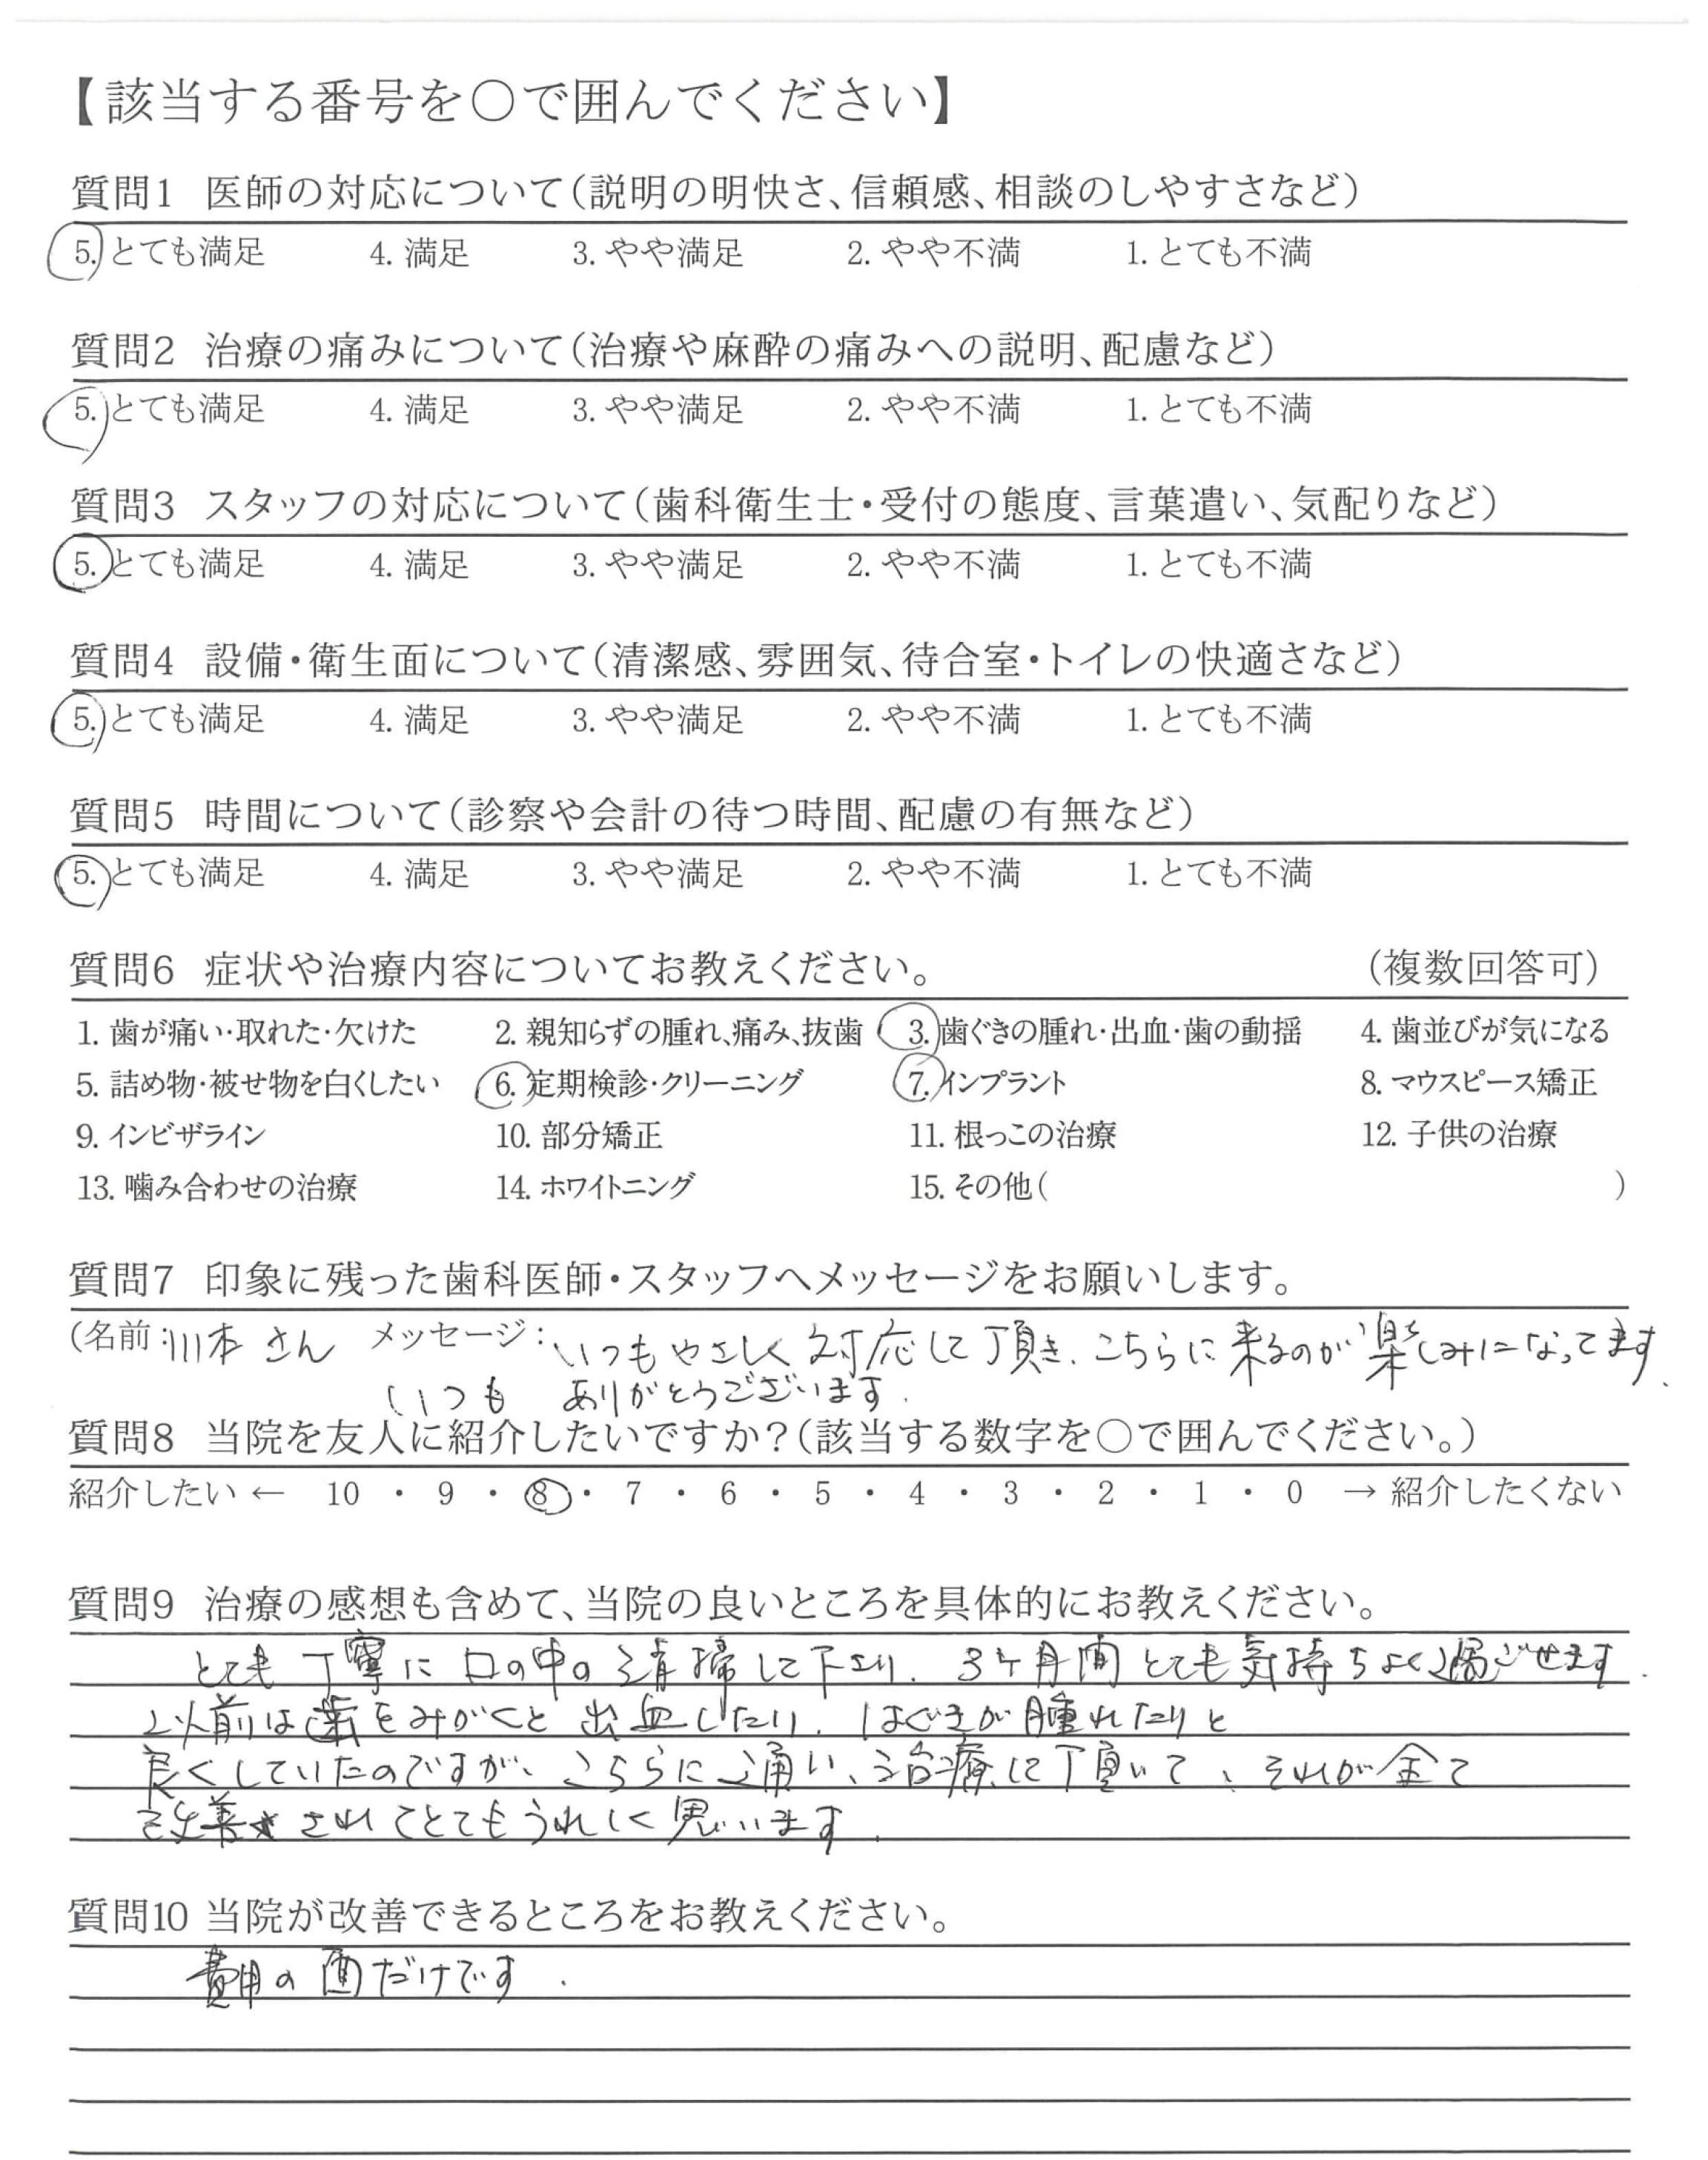 【該当する番号を〇で囲んでください】
質問1 医師の対応について(説明の明快さ、信頼感、相談のしやすさなど)
5. とても満足 4. 満足 3. やや満足 2. やや不満 1. とても不満
質問2 治療の痛みについて(治療や麻酔の痛みへの説明、配慮など)
5. とても満足 4. 満足 3. やや満足 2. やや不満 1. とても不満
質問3 スタッフの対応について(歯科衛生士・受付の態度、言葉遣い、気配りなど)
5. とても満足 4. 満足 3. やや満足 2. やや不満 1. とても不満
質問4 設備・衛生面について(清潔感、雰囲気、待合室・トイレの快適さなど)
5. とても満足 4. 満足 3. やや満足 2. やや不満 1. とても不満
質問5 時間について(診察や会計の待つ時間、配慮の有無など)
5. とても満足 4. 満足 3. やや満足 2. やや不満 1. とても不満
質問6 症状や治療内容についてお教えください。 (複数回答可)
1. 歯が痛い・取れた・欠けた 2. 親知らずの腫れ、痛み、抜歯 3. 歯ぐきの腫れ・出血・歯の動揺 4. 歯並びが気になる
5. 詰め物・被せ物を白くしたい 6. 定期検診・クリーニング 7. インプラント 8. マウスピース矯正
9. インビザライン 10. 部分矯正 11. 根っこの治療 12. 子供の治療
13. 噛み合わせの治療 14. ホワイトニング 15. その他( )
質問7 印象に残った歯科医師・スタッフへメッセージをお願いします。
(名前:川本 さん メッセージ:いつもやさしく対応して頂き、こちらに来るのが楽しみになってます。
いつも ありがとうございます。
質問8 当院を友人に紹介したいですか?(該当する数字を〇で囲んでください。)
紹介したい ← 10 ・ 9 ・ 8 ・ 7 ・ 6 ・ 5 ・ 4 ・ 3 ・ 2 ・ 1 ・ 0 → 紹介したくない
質問9 治療の感想も含めて、当院の良いところを具体的にお教えください。
とても 丁寧に 口の中の清掃して下さり、3ヶ月間とても気持ちよく過ごせます.
以前は歯をみがくと出血したり、はぐきが腫れたりと
良くしていたのですが、こちらに通い、治療して頂いて、それが全て
改善されてとてもうれしく思います.
質問10 当院が改善できるところをお教えください。
費用の面だけです.